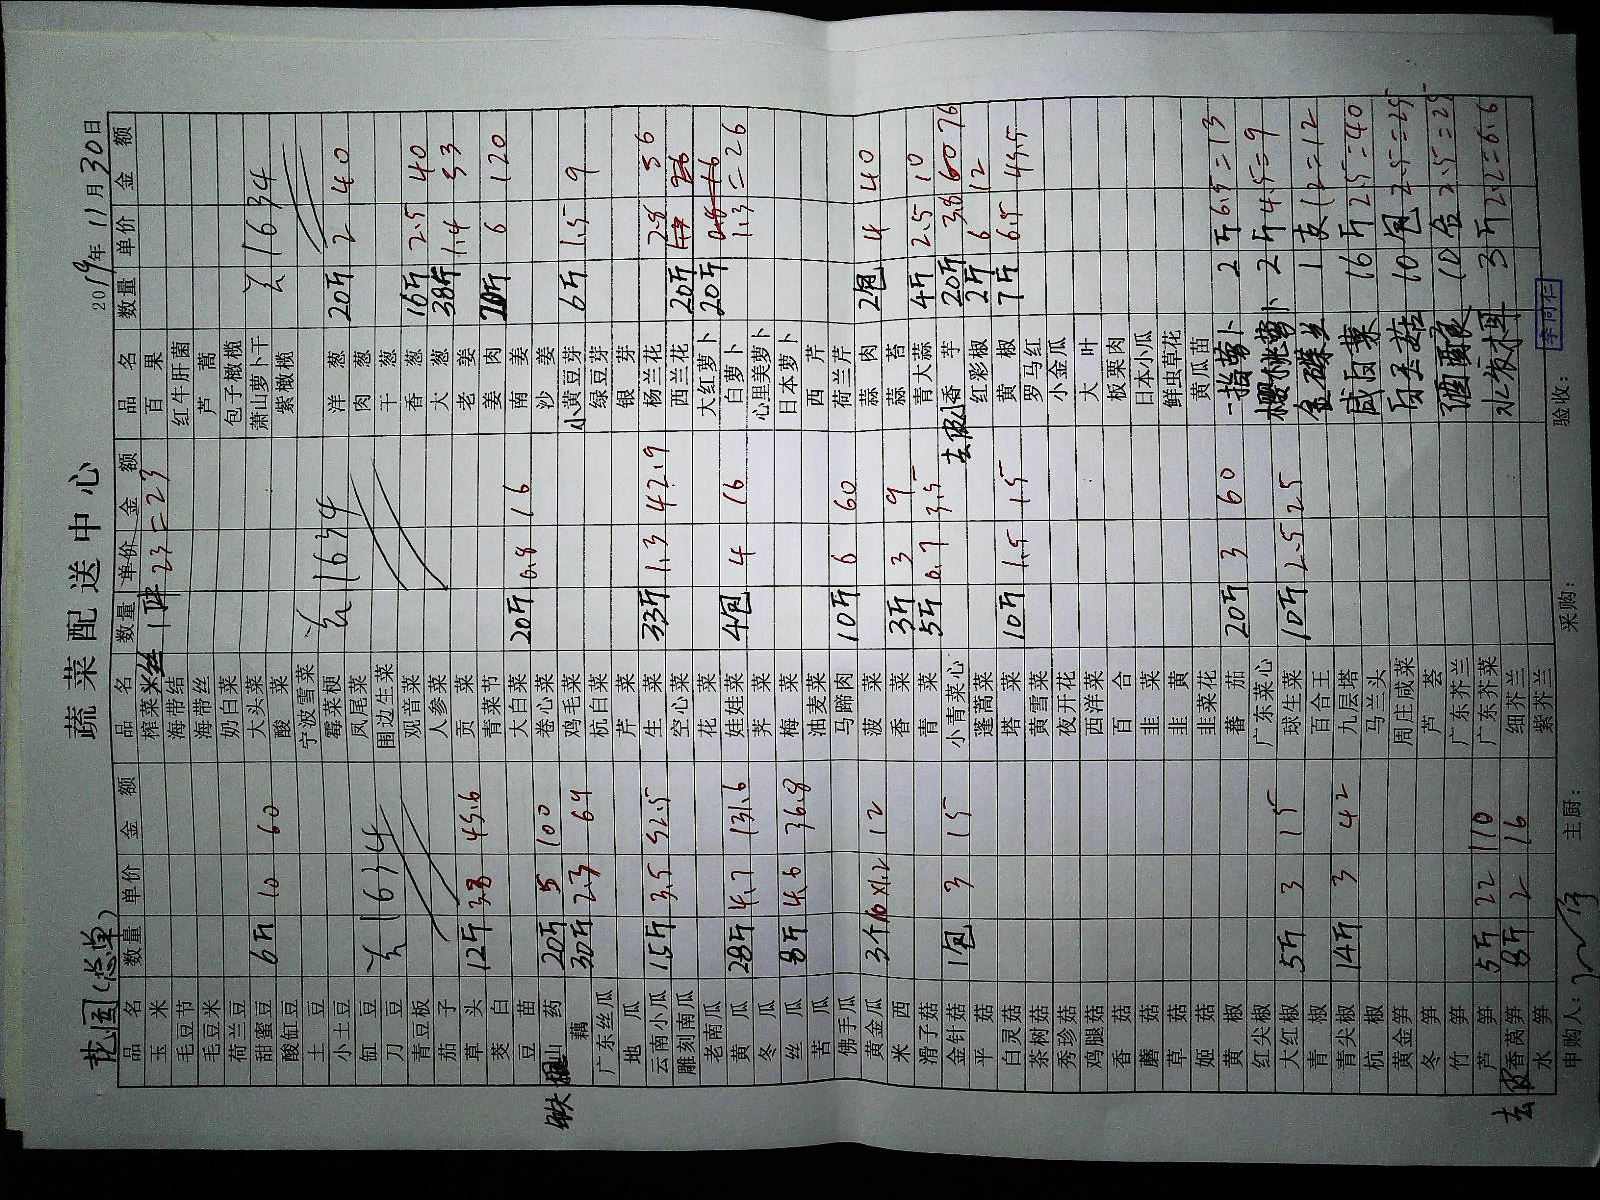 蔬菜配送中心
花园(总单)
2019年11月30日
品名 数量 单价 金额 品名 数量 单价 金额 品名 数量 单价 金额
玉米 榨菜丝 1罐 23=23 百果
毛豆节 海带结 红牛肝菌
毛豆米 海带丝 芦蒿
荷兰豆 奶白菜 包子橄榄
甜蜜豆 6斤 10 60 大头菜 萧山萝卜干 1634
酸缸豆 酸菜 紫橄榄
土豆 宁波雪菜
小土豆 霉菜梗 1634 洋葱 20斤 2 40
缸豆 1634 凤尾菜 肉葱
刀豆 围边生菜 干葱
青豆板 观音菜 香葱 16斤 2.5 40
茄子 人参菜 大葱 38斤 1.4 53
草头 12斤 3.8 45.6 贡菜 老姜
茭白 青菜节 姜肉 20斤 6 120
豆苗 大白菜 20斤 0.8 16 南姜
铁棍山药 20斤 5 100 卷心菜 沙姜
藕 30斤 2.3 69 鸡毛菜 小黄豆芽 6斤 1.5 9
广东丝瓜 杭白菜 绿豆芽
地瓜 芹菜 银芽
云南小瓜 15斤 3.5 52.5 生菜 33斤 1.3 42.9 杨兰花
雕刻南瓜 空心菜 西兰花 20斤 2.8 56
老南瓜 花菜 大红萝卜 20斤
黄瓜 28斤 4.7 131.6 娃娃菜 4包 4 16 白萝卜 1.3=26
冬瓜 荠菜 心里美萝卜
丝瓜 8斤 4.6 36.8 梅菜 日本萝卜
苦瓜 油麦菜 西芹
佛手瓜 马蹄肉 10斤 6 60 荷兰芹
黄金瓜 3个10×1.2 12 菠菜 蒜肉 2包 4 40
米西 香菜 3斤 3 9 蒜苔
滑子菇 青菜 5斤 0.7 3.5 青大蒜 4斤 2.5 10
金针菇 1包 3 15 小青菜心 去皮香芋 20斤 3.8 76
平菇 蓬蒿菜 红彩椒 2斤 6 12
白灵菇 塔菜 10斤 1.5 15 黄椒 7斤 6.5 45.5
茶树菇 黄雪菜 罗马红
秀珍菇 夜开花 小金瓜
鸡腿菇 西洋菜 大叶
香菇 百合 板栗肉
蘑菇 韭菜 日本小瓜
草菇 韭黄 鲜虫草花
姬菇 韭菜花 黄瓜苗
黄椒 蕃茄 20斤 3 60 一指萝卜 2斤 6.5=13
红尖椒 广东菜心 樱桃萝卜 2斤 4.5=9
大红椒 5斤 3 15 球生菜 10斤 2.5 25 金碟丝 1支 12=12
青椒 百合王
青尖椒 14斤 3 42 九层塔 咸卤菜 16斤 2.5=40
杭椒 马兰头
黄金笋 周庄咸菜 白玉菇 10包 2.5=25
冬笋 芦荟
竹笋 广东芥兰 酒酿 10合 2.5=25
芦笋 5斤 22 110 广东芥菜
去皮香莴笋 8斤 2 16 细芥兰 水发木耳 3斤 2.2=6.6
水笋 紫芥兰
申购人: 主厨: 采购: 验收:
李同仁